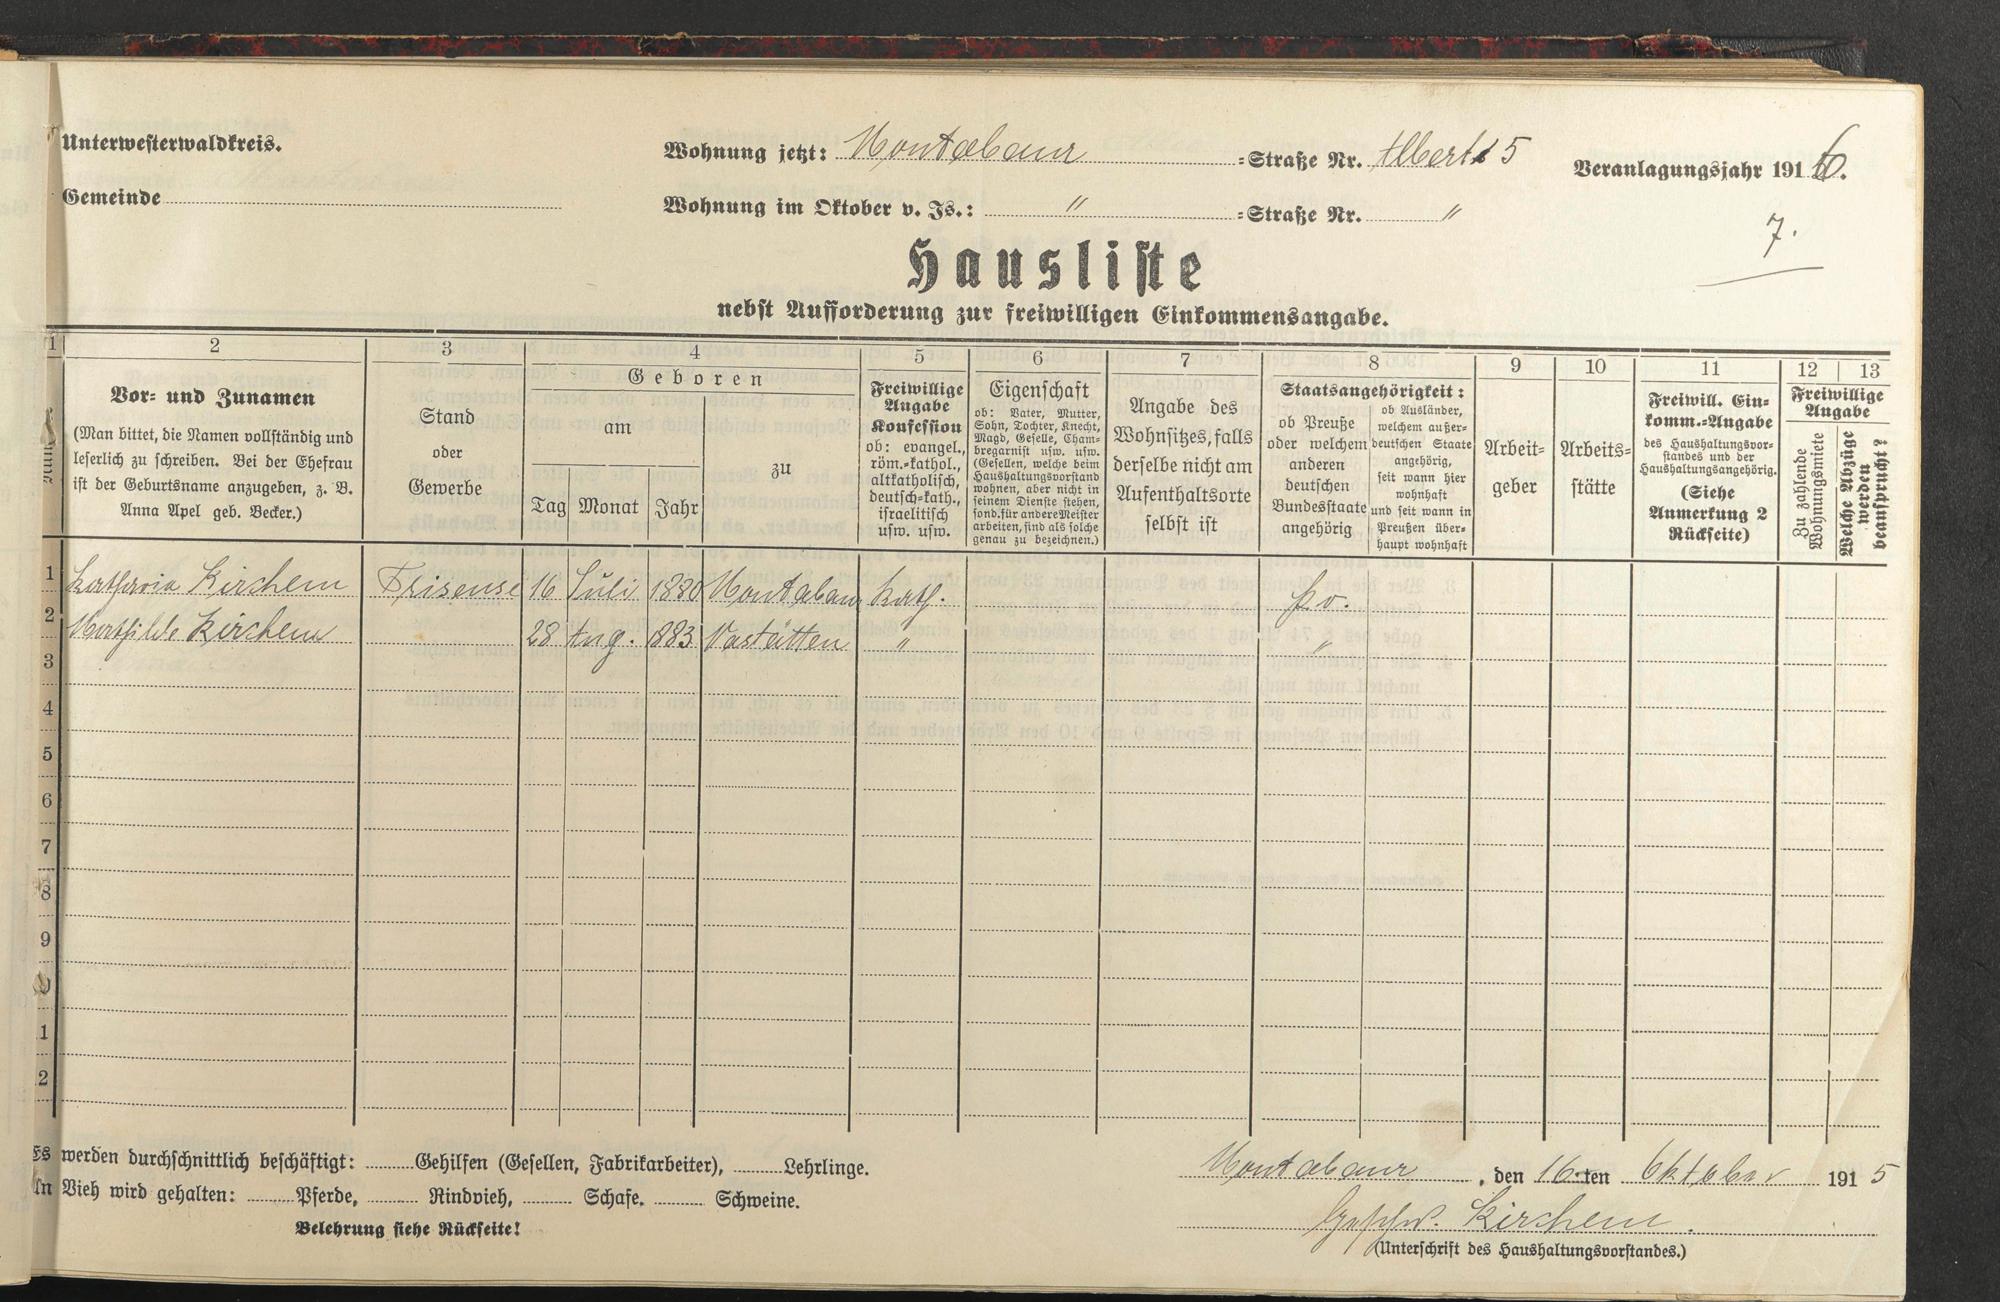 Unterwesterwaldkreis.
Gemeinde
Wohnung jetzt: Montabaur =Straße Nr. Albert 5
Veranlagungsjahr 1916.
Wohnung im Oktober v. Js.: " =Straße Nr. "
7.
Hausliste
nebst Aufforderung zur freiwilligen Einkommensangabe.
1 2 3 4 5 6 7 8 9 10 11 12 13
Vor- und Zunamen
(Man bittet, die Namen vollständig und
leserlich zu schreiben. Bei der Ehefrau
ist der Geburtsname anzugeben, z. B.
Anna Apel geb. Becker.)
Stand
oder
Gewerbe
Geboren
am
Tag Monat Jahr
zu
Freiwillige
Angabe
Konfession
ob: evangel.,
röm.-kathol.,
altkatholisch,
deutsch-kath.,
israelitisch
usw. usw.
Eigenschaft
ob: Vater, Mutter,
Sohn, Tochter, Knecht,
Magd, Geselle, Cham-
bregarnist usw. usw.
(Gesellen, welche beim
Haushaltungsvorstand
wohnen, aber nicht in
seinem Dienste stehen,
sond. für andere Meister
arbeiten, sind als solche
genau zu bezeichnen.)
Angabe des
Wohnsitzes, falls
derselbe nicht am
Aufenthaltsorte
selbst ist
Staatsangehörigkeit:
ob Preuße
oder welchem
anderen
deutschen
Bundesstaate
angehörig
ob Ausländer,
welchem außer-
deutschen Staate
angehörig,
seit wann hier
wohnhaft
und seit wann in
Preußen über-
haupt wohnhaft
Arbeit-
geber
Arbeits-
stätte
Freiwill. Ein-
komm.-Angabe
des Haushaltungsvor-
standes und der
Haushaltungsangehörig.
(Siehe
Anmerkung 2
Rückseite)
Freiwillige
Angabe
Zu zahlende
Wohnungsmiete
Welche Abzüge
werden
beansprucht?
1 Katharina Kirchem Friseuse 16 Juli 1880 Montabaur kath. Pr.
2 Mathilde Kirchem 28 Aug. 1883 Nastätten " "
3
4
5
6
7
8
9
0
1
2
Es werden durchschnittlich beschäftigt: Gehilfen (Gesellen, Fabrikarbeiter), Lehrlinge.
An Vieh wird gehalten: Pferde, Rindvieh, Schafe. Schweine.
Belehrung siehe Rückseite!
Montabaur, den 16.ten Oktober 1915
Geschw. Kirchem.
(Unterschrift des Haushaltungsvorstandes.)